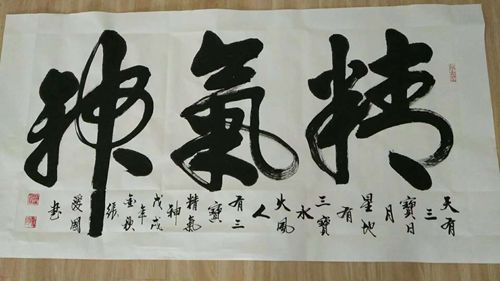 精氣神
天有
三
寶日
月
星地
有
三寶
水
火風
人
有三
寶
精氣
神
戊戌
年
金秋
張
愛國
書